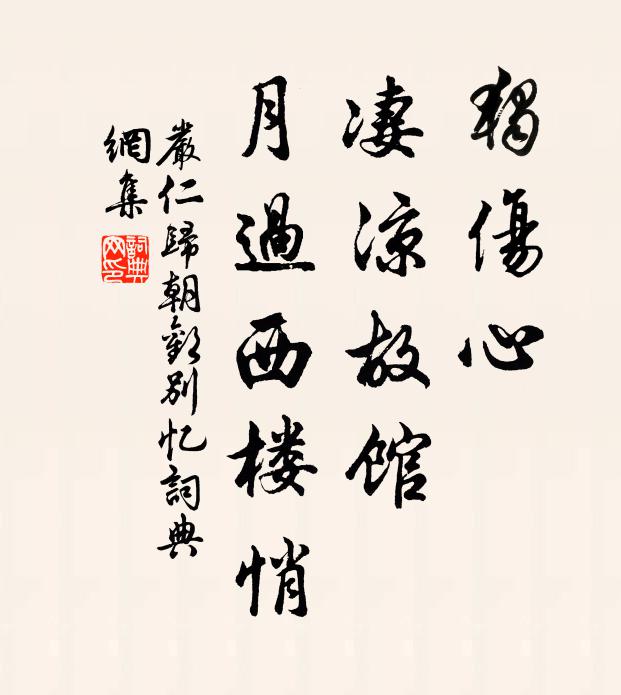 獨傷心
凄涼故館
月過西楼悄
嚴仁歸朝歡别忆詞典
網集
詞典
网印